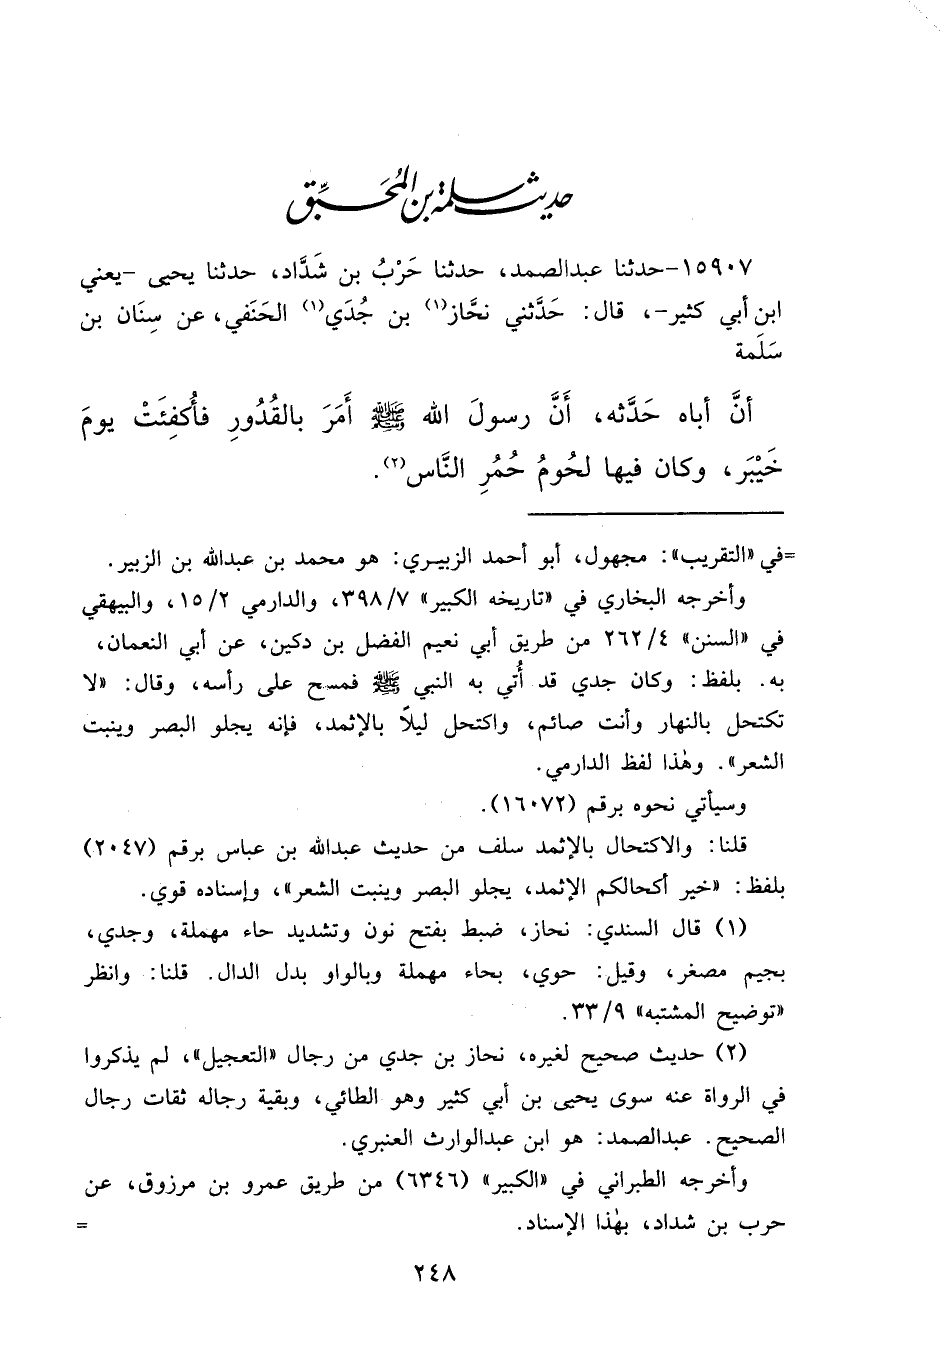 حديث سلمة بن المُحَبِّق
١٥٩٠٧-حدثنا عبدالصمد، حدثنا حَرْبُ بن شَدَّاد، حدثنا يحيى -يعني
ابن أبي كثير-، قال: حَدَّثني نحَّاز(١) بن جُدَي(١) الحَنَفي، عن سِنَان بن
سَلَمة
أنَّ أباه حَدَّثه، أنَّ رسولَ الله ﷺ أَمَرَ بالقُدُورِ فأُكفِئَتْ يومَ
خَيْبَر، وكان فيها لحُومُ حُمُرِ النَّاس(٢).
=في «التقريب»: مجهول، أبو أحمد الزبيري: هو محمد بن عبدالله بن الزبير.
وأخرجه البخاري في «تاريخه الكبير» ٣٩٨/٧، والدارمي ١٥/٢، والبيهقي
في «السنن» ٢٦٢/٤ من طريق أبي نعيم الفضل بن دكين، عن أبي النعمان،
به. بلفظ: وكان جدي قد أُتي به النبي ﷺ فمسح على رأسه، وقال: «لا
تكتحل بالنهار وأنت صائم، واكتحل ليلاً بالإثمد، فإنه يجلو البصر وينبت
الشعر». وهٰذا لفظ الدارمي.
وسيأتي نحوه برقم (١٦٠٧٢).
قلنا: والاكتحال بالإثمد سلف من حديث عبدالله بن عباس برقم (٢٠٤٧)
بلفظ: «خير أكحالكم الإثمد، يجلو البصر وينبت الشعر»، وإسناده قوي.
(١) قال السندي: نحاز، ضبط بفتح نون وتشديد حاء مهملة، وجدي،
بجيم مصغر، وقيل: حوي، بحاء مهملة وبالواو بدل الدال. قلنا: وانظر
«توضيح المشتبه» ٣٣/٩.
(٢) حديث صحيح لغيره، نحاز بن جدي من رجال «التعجيل»، لم يذكروا
في الرواة عنه سوى يحيى بن أبي كثير وهو الطائي، وبقية رجاله ثقات رجال
الصحيح. عبدالصمد: هو ابن عبدالوارث العنبري.
وأخرجه الطبراني في «الكبير» (٦٣٤٦) من طريق عمرو بن مرزوق، عن
حرب بن شداد، بهٰذا الإسناد. =
٢٤٨